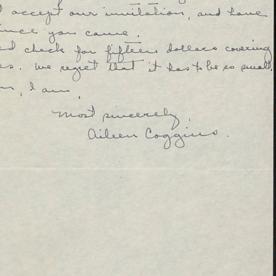 accept our invitation, and have
since you came.
check for fifteen dollars covering
es. We regret that it has to be so small
I am,
Most sincerely,
Aileen Coggins.